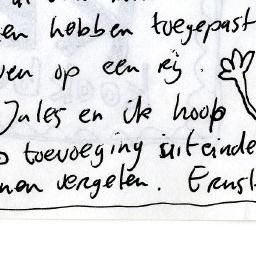 en hebben toegepast
ven op een rij.
Jules en ik hoop
toevoeging uiteinde
nen vergeten. Ernst